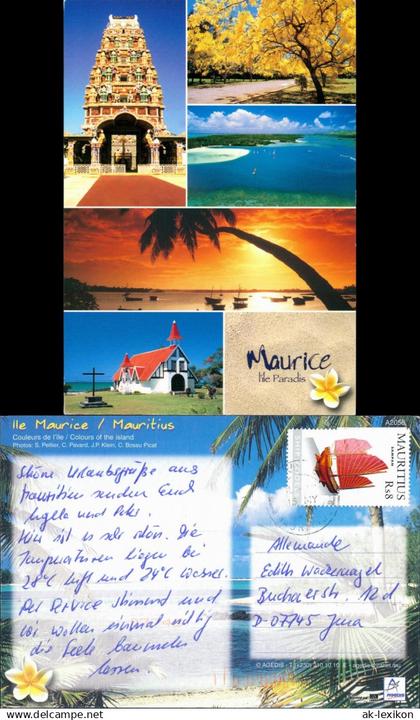 Maurice
l'île Paradis
Ile Maurice / Mauritius
Couleurs de l'île / Colours of the island
Photos: S. Peltier, C. Pavard, J.P. Klein, C. Bossu Picat
A2056
MAURITIUS
Rs8
Schöne Urlaubsgrüße aus
Mauritius senden Euch
Angela und
Hier ist es sehr schön. Die
Temperaturen liegen bei
28°C Luft und 24°C Wasser.
Der Service stimmt und
wir wollen einmal richtig
die Seele baumeln
lassen.
Allemande
Edith
12d
D-07745 Jena
© AGEDIS
AGEDIS
ak-lexikon